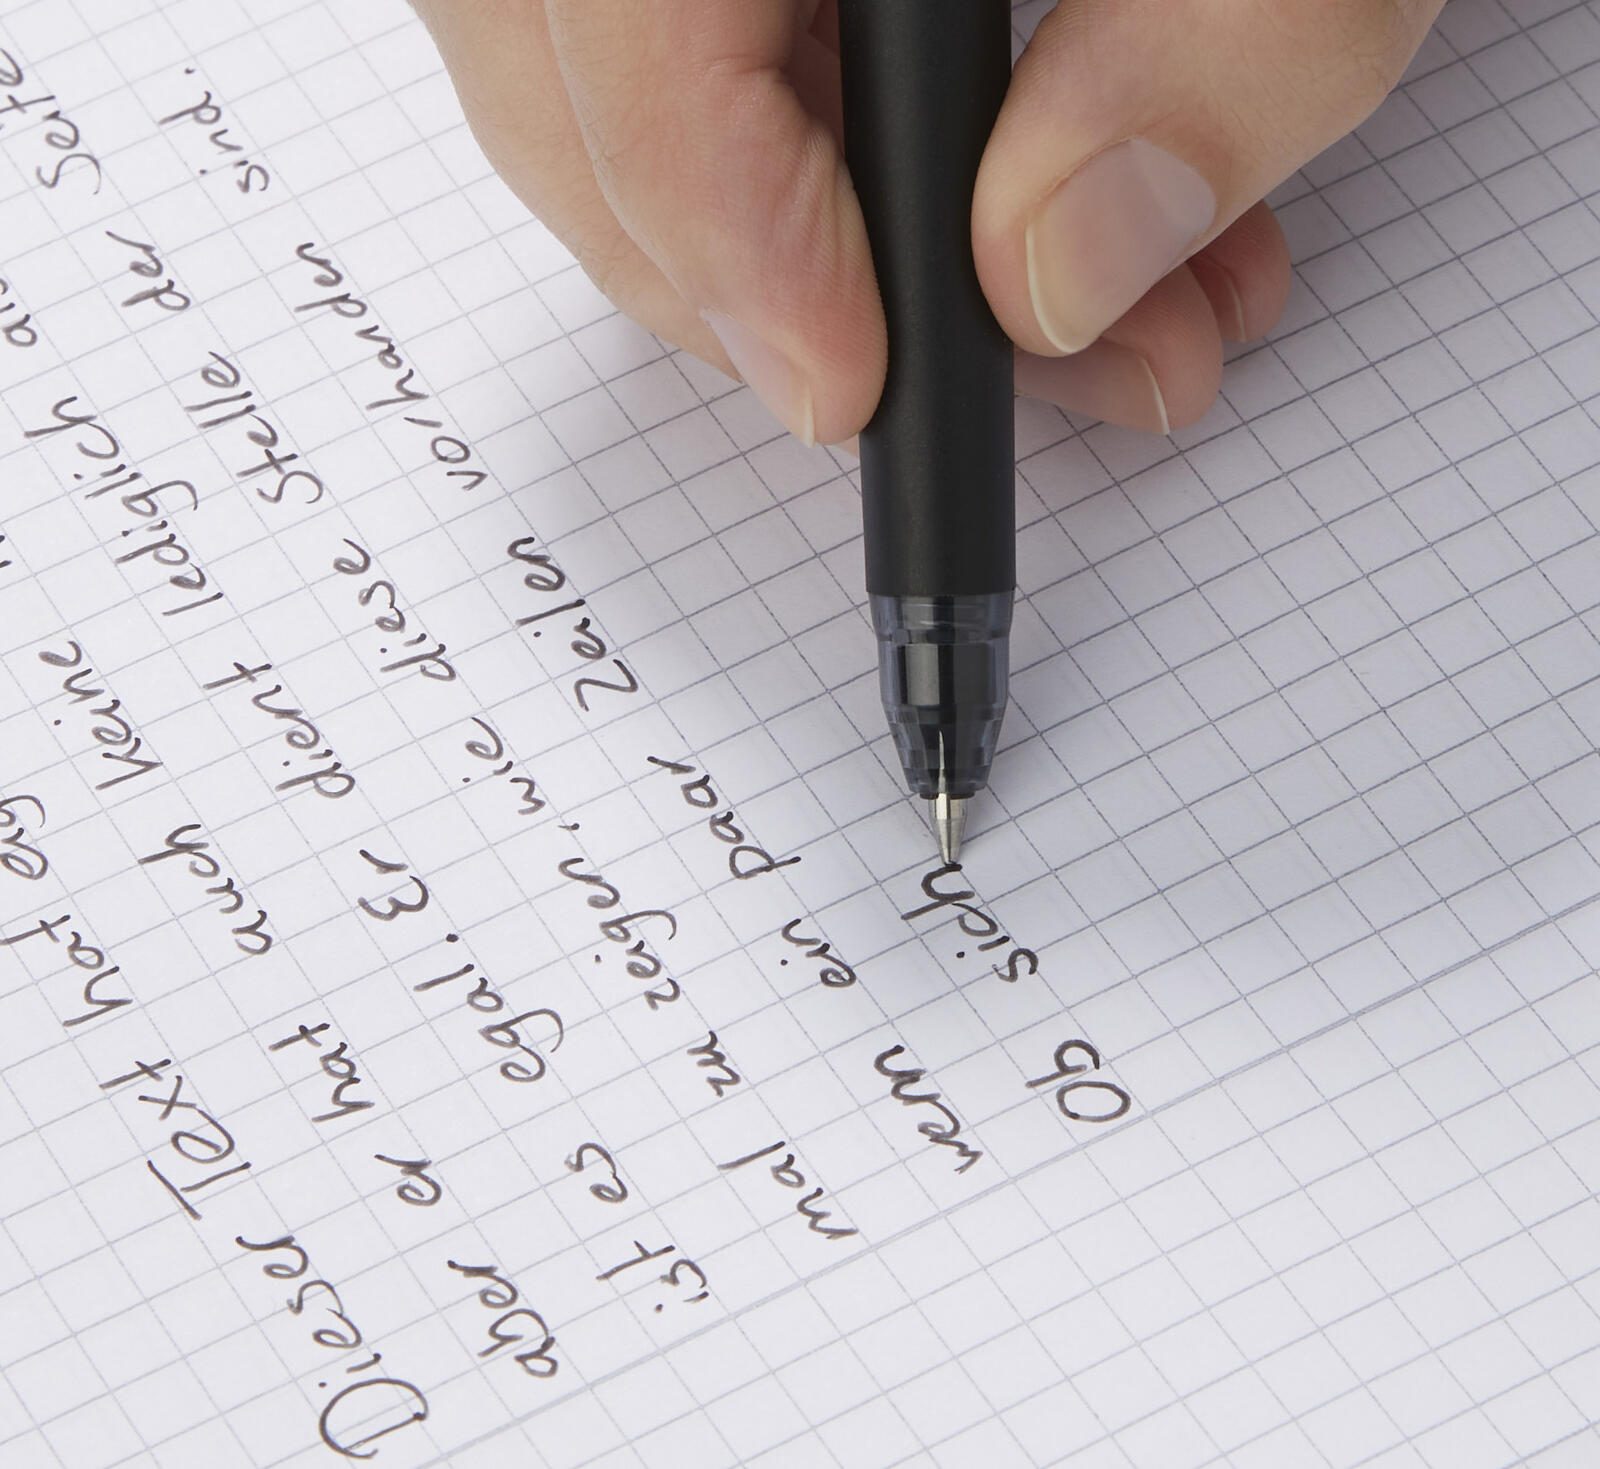 Dieser Text hat
aber er hat auch keine
ist es egal. Er dient lediglich
mal zu zeigen, wie diese Stelle der Seite
wenn ein paar Zeilen vorhanden sind.
Ob sich